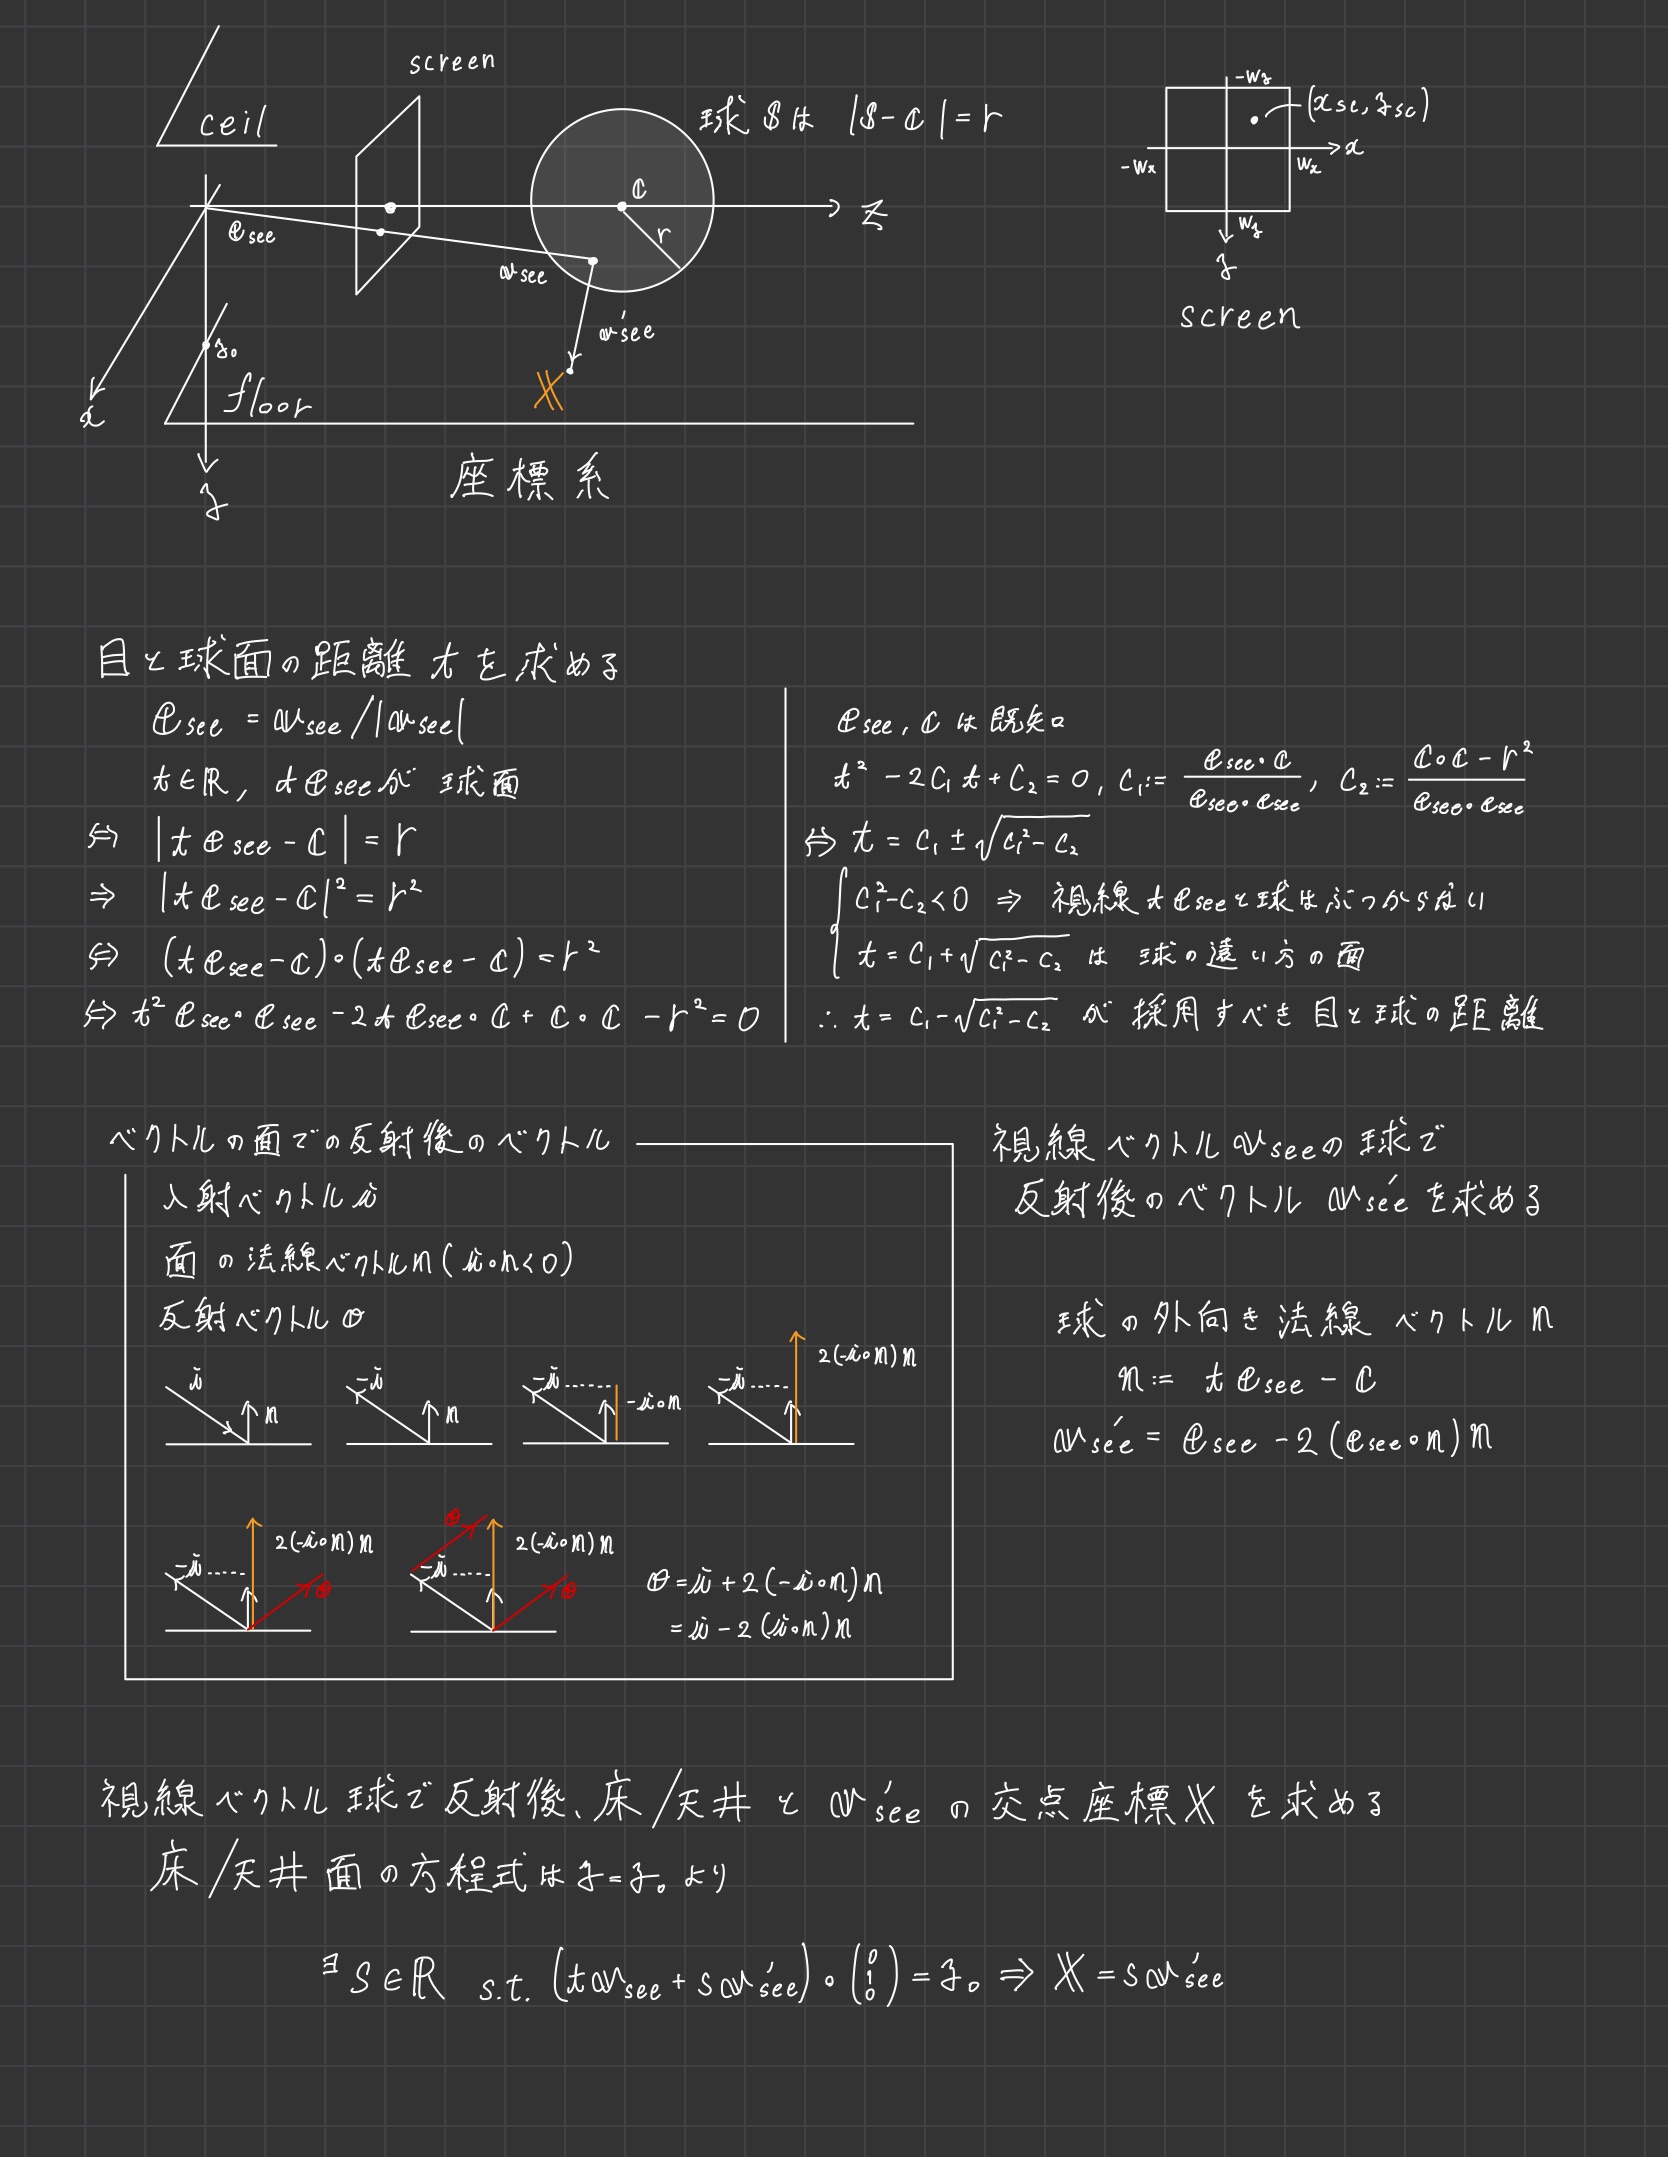 screen
ceil
球 𝕊は |𝕊-ℂ|=r
ℂ
r
z
𝕖see
𝕧see
𝕧'see
y₀
𝕏
floor
x
y
座標系
-Wy
(xsc, ysc)
x
-Wx
Wx
Wy
y
screen
目と球面の距離 t を求める
𝕖see = 𝕧see/|𝕧see|
t∈ℝ, t𝕖seeが 球面
⇔ |t𝕖see-ℂ|=r
⇒ |t𝕖see-ℂ|²=r²
⇔ (t𝕖see-ℂ)∘(t𝕖see-ℂ)=r²
⇔ t²𝕖see∘𝕖see-2t𝕖see∘ℂ+ℂ∘ℂ-r²=0
𝕖see, ℂ は既知
t²-2C₁t+C₂=0, C₁:= 𝕖see∘ℂ/𝕖see∘𝕖see, C₂:= ℂ∘ℂ-r²/𝕖see∘𝕖see
⇔ t = C₁±√C₁²-C₂
C₁²-C₂<0 ⇒ 視線t𝕖seeと球はぶつからない
t=C₁+√C₁²-C₂ は 球の遠い方の面
∴ t=C₁-√C₁²-C₂ が 採用すべき目と球の距離
ベクトルの面での反射後のベクトル
入射ベクトル𝕚
面の法線ベクトル𝕟(𝕚∘𝕟<0)
反射ベクトル𝕠
𝕚
𝕟
-𝕚
𝕟
-𝕚
-𝕚∘𝕟
-𝕚
2(-𝕚∘𝕟)𝕟
-𝕚
2(-𝕚∘𝕟)𝕟
𝕠
𝕠
-𝕚
2(-𝕚∘𝕟)𝕟
𝕠
𝕠=𝕚+2(-𝕚∘𝕟)𝕟
=𝕚-2(𝕚∘𝕟)𝕟
視線ベクトル𝕧seeの球で
反射後のベクトル 𝕧'seeを求める
球の外向き法線ベクトル 𝕟
𝕟:= t𝕖see-ℂ
𝕧'see=𝕖see-2(𝕖see∘𝕟)𝕟
視線ベクトル球で反射後、床/天井と𝕧'seeの交点座標𝕏を求める
床/天井面の方程式はy=y₀より
∃S∈ℝ s.t. (t𝕧see+s𝕧'see)∘(0 1 0)=y₀⇒𝕏=s𝕧'see